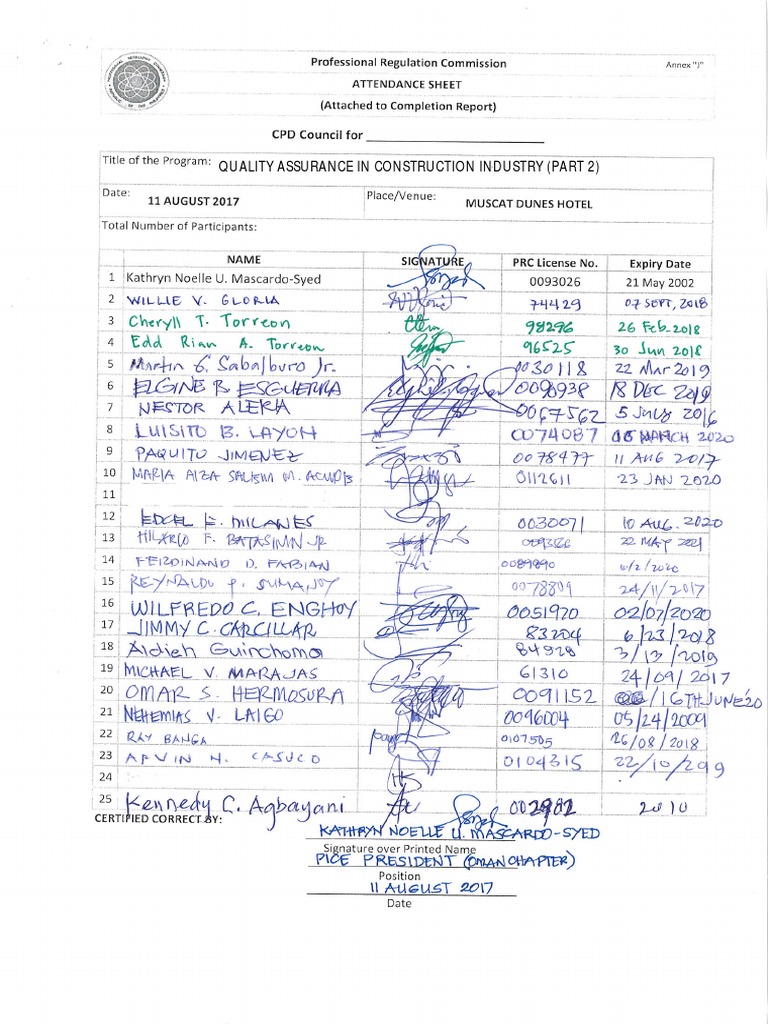 Professional Regulation Commission
Annex "J"
ATTENDANCE SHEET
(Attached to Completion Report)
CPD Council for
Title of the Program: QUALITY ASSURANCE IN CONSTRUCTION INDUSTRY (PART 2)
Date: 11 AUGUST 2017 Place/Venue: MUSCAT DUNES HOTEL
Total Number of Participants:
NAME SIGNATURE PRC License No. Expiry Date
1 Kathryn Noelle U. Mascardo-Syed 0093026 21 May 2002
2 WILLIE V. GLORIA 74429 07 SEPT, 2018
3 Cheryll T. Torreon 98296 26 Feb 2018
4 Edd Rian A. Torreon 96525 30 Jun 2018
5 Martin G. Sabalburo Jr. 0030118 22 Mar 2019
6 ELGINE B ESGUERRA 0090938 18 DEC 2019
7 NESTOR ALERIA 0067562 5 July 2016
8 LUISITO B. LAYON 0074087 MARCH 2020
9 PAQUITO JIMENEZ 0078477 11 AUG 2017
10 MARIA AIZA M. 0112611 23 JAN 2020
11
12 EDCEL E. MILANES 0030071 10 AUG. 2020
13 HILARIO F. BATASININ JR 22 MAY 2021
14 FERDINAND D. FABIAN 0089890 2020
15 REYNALDO P. SUMANOY 0078809 24/11/2017
16 WILFREDO C. ENGHOY 0051920 02/07/2020
17 JIMMY C. CARCILLAR 83204 6/23/2018
18 Aldieh Guinchoma 84928 3/13/2019
19 MICHAEL V. MARAJAS 61310 24/09/2017
20 OMAR S. HERMOSURA 0091152 /16TH JUNE'20
21 NEHEMIAS V. LAIGO 0096004 05/24/2009
22 RAY BANGA 0107505 26/08/2018
23 ARVIN N. CASUCO 0104315 22/10/
24
25 Kennedy C. Agbayani 2010
CERTIFIED CORRECT BY:
KATHRYN NOELLE U. MASCARDO-SYED
Signature over Printed Name
VICE PRESIDENT (OMAN CHAPTER)
Position
11 AUGUST 2017
Date